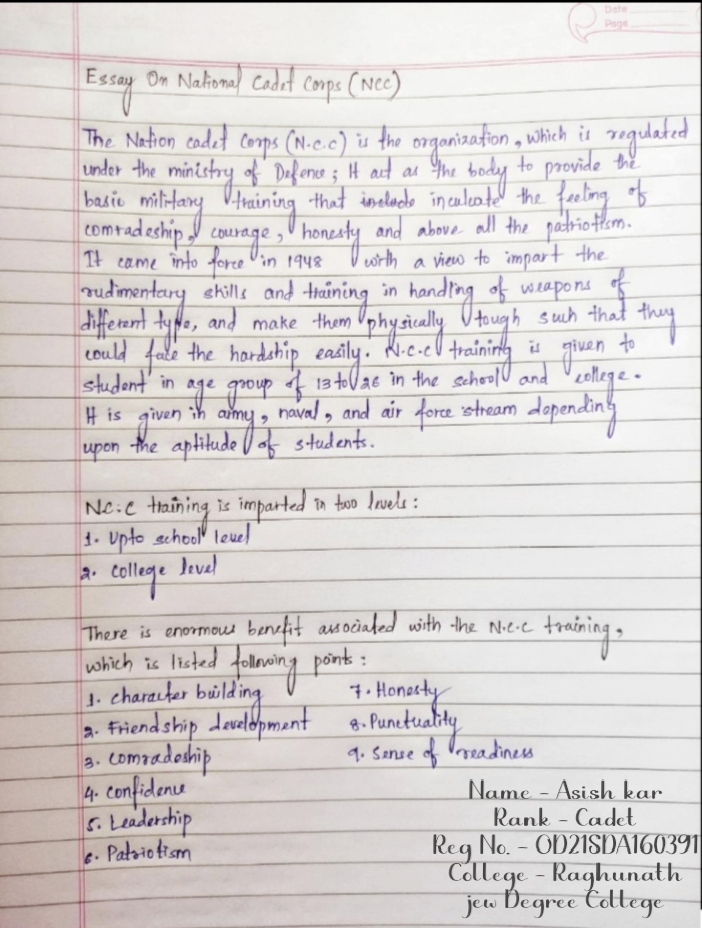 Date
Page
Essay On National Cadet Corps (NCC)
The Nation cadet Corps (N.C.C) is the organization, which is regulated
under the ministry of Defence; It act as the body to provide the
basic military training that include inculcate the feeling of
comradeship, courage, honesty and above all the patriotism.
It came into force in 1948 with a view to impart the
rudimentary skills and training in handling of weapons of
different type, and make them physically tough such that they
could face the hardship easily. N.C.C training is given to
student in age group of 13 to 26 in the school and college.
It is given in army, naval, and air force stream depending
upon the aptitude of students.
N.C.C training is imparted in two levels:
1. Upto school level
2. College level
There is enormous benefit associated with the N.C.C training,
which is listed following points:
1. Character building
2. Friendship development
3. Comradeship
4. Confidence
5. Leadership
6. Patriotism
7. Honesty
8. Punctuality
9. Sense of readiness
Name - Asish kar
Rank - Cadet
Reg No. - OD21SDA160391
College - Raghunath
jew Degree College